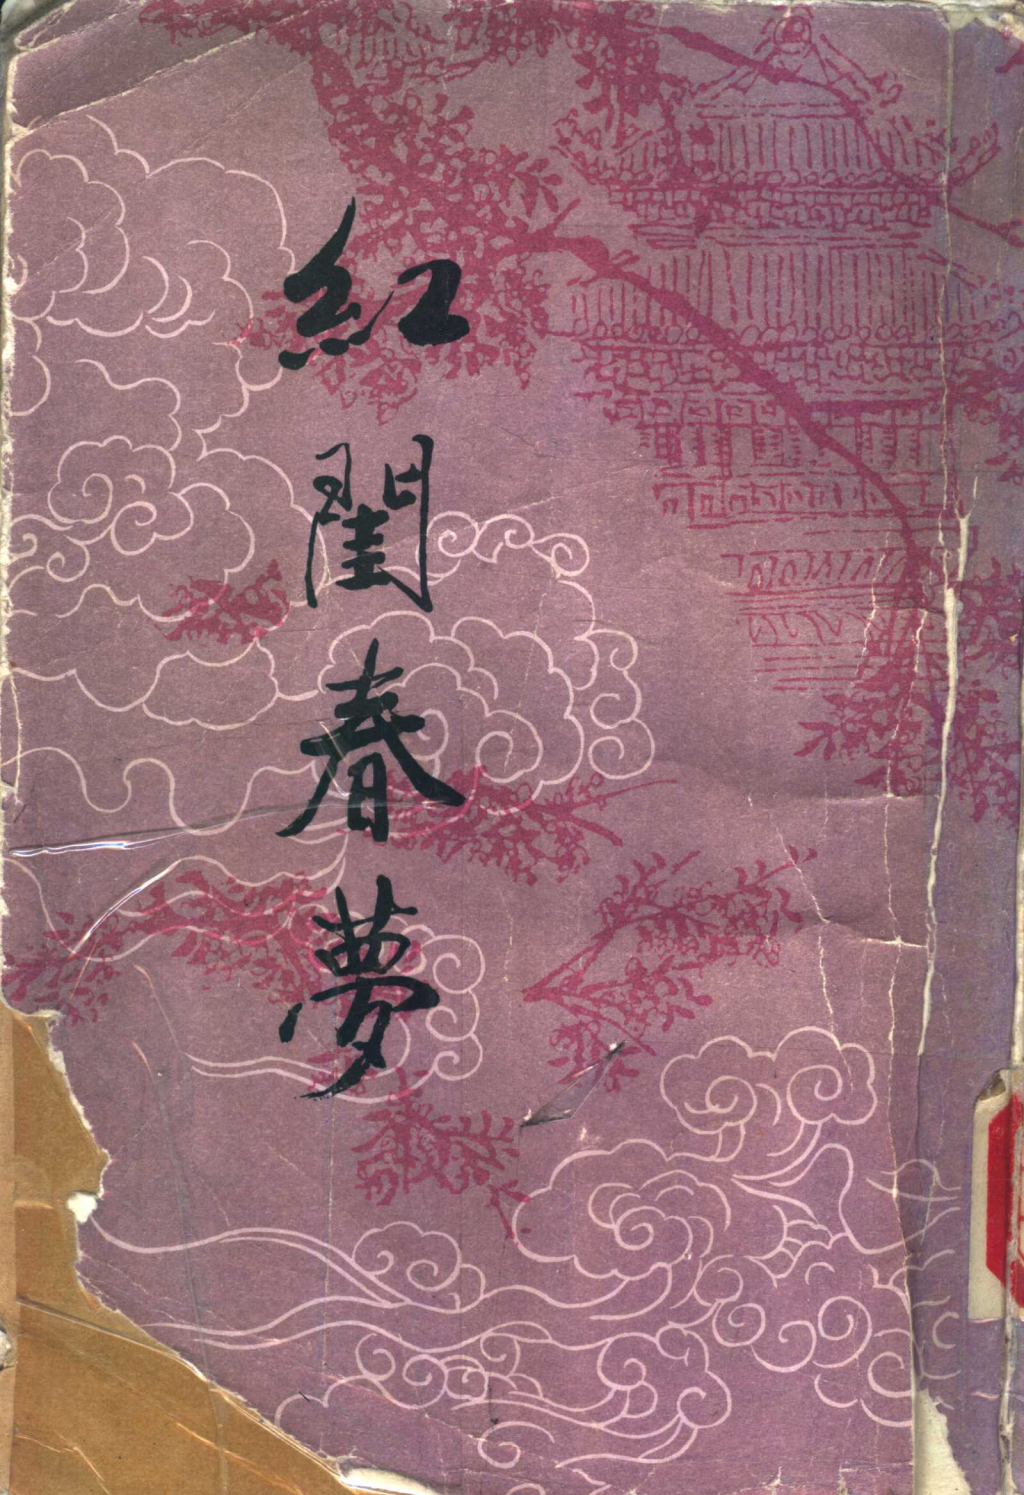 紅閨春夢